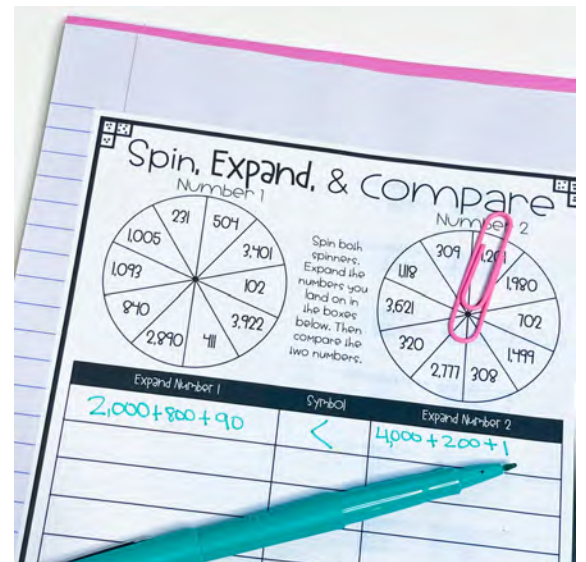 Spin, Expand, & Compare
Number 1
231
504
3,401
102
3,922
411
2,890
840
1,093
1,005
Spin both
spinners.
Expand the
numbers you
land on in
the boxes
below. Then
compare the
two numbers.
Number 2
309
1,980
702
1,499
308
2,777
320
3,621
1,118
Expand Number 1
Symbol
Expand Number 2
2,000+800+90
<
4,000+200+1